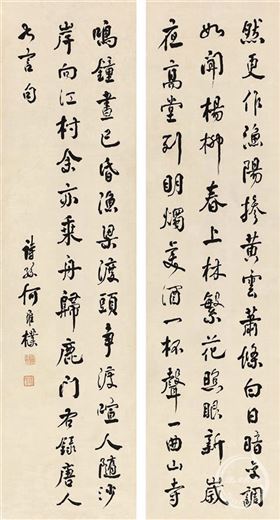 然更作漁陽摻黃雲蕭條白日暗變調
如聞楊柳春上林繁花照眼新歲
夜高堂列明燭美酒一杯聲一曲山寺
鳴鐘晝已昏漁梁渡頭爭渡喧人隨沙
岸向江村余亦乘舟歸鹿門右錄唐人
七言句
詩孫何維樸